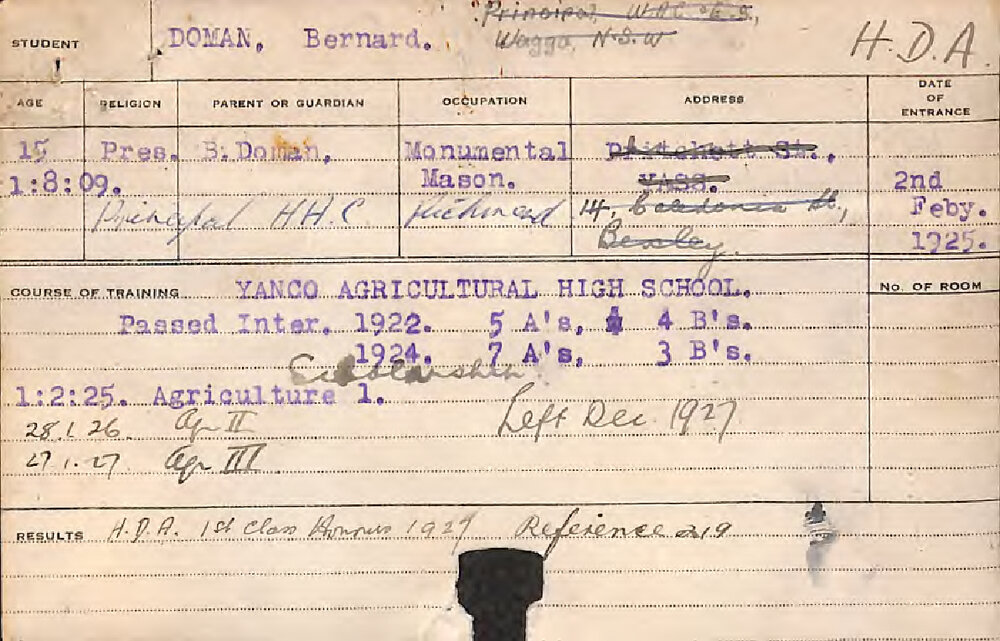 Principal, W.A.C. & E.S.,
STUDENT DOMAN, Bernard. Wagga, N.S.W H.D.A.
AGE RELIGION PARENT OR GUARDIAN OCCUPATION ADDRESS DATE OF ENTRANCE
15 Pres. B. Doman, Monumental Pritchett St.,
1:8:09. Mason. YASS. 2nd
Principal HHC Richmond 14, Caledonia St., Feby.
Bexley. 1925.
COURSE OF TRAINING YANCO AGRICULTURAL HIGH SCHOOL. No. OF ROOM
Passed Inter. 1922. 5 A's, 4 B's.
1924. 7 A's, 3 B's.
Scholarship
1:2:25. Agriculture 1.
28.1.26. Agr II Left Dec. 1927
27.1.27 Agr III
RESULTS H.D.A. 1st Class Honours 1927 Reference 219